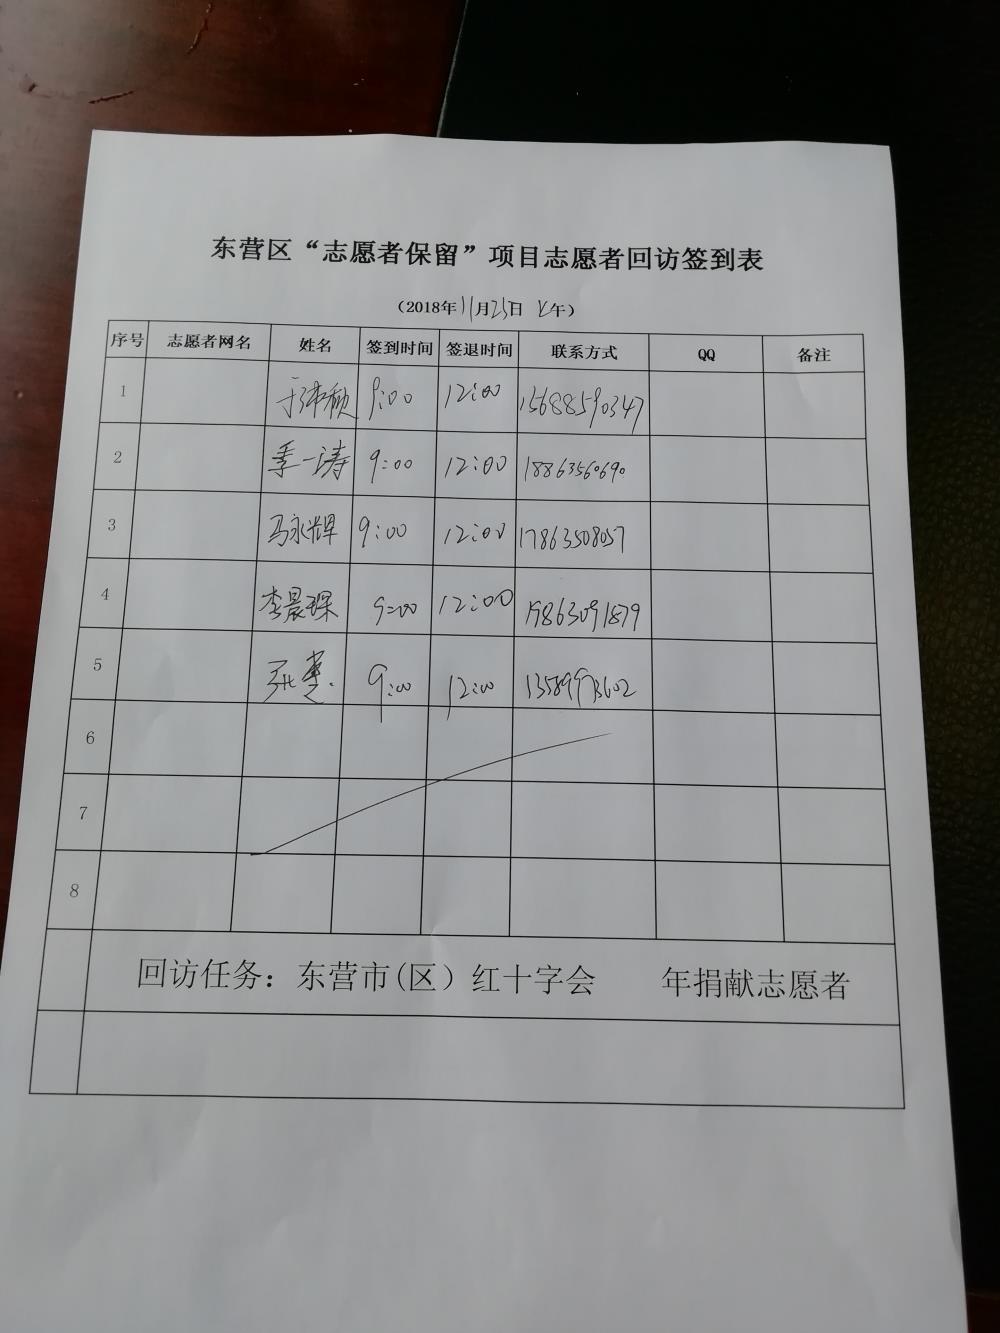 东营区“志愿者保留”项目志愿者回访签到表
（2018年11月25日 上午）
序号 志愿者网名 姓名 签到时间 签退时间 联系方式 QQ 备注
1 9:00 12:00 15688590347
2 季一涛 9:00 12:00 18863560690
3 马永辉 9:00 12:00 17863508057
4 李晨琛 9:00 12:00 19863091879
5 9:00 12:00 13589973602
6
7
8
回访任务：东营市(区）红十字会 年捐献志愿者